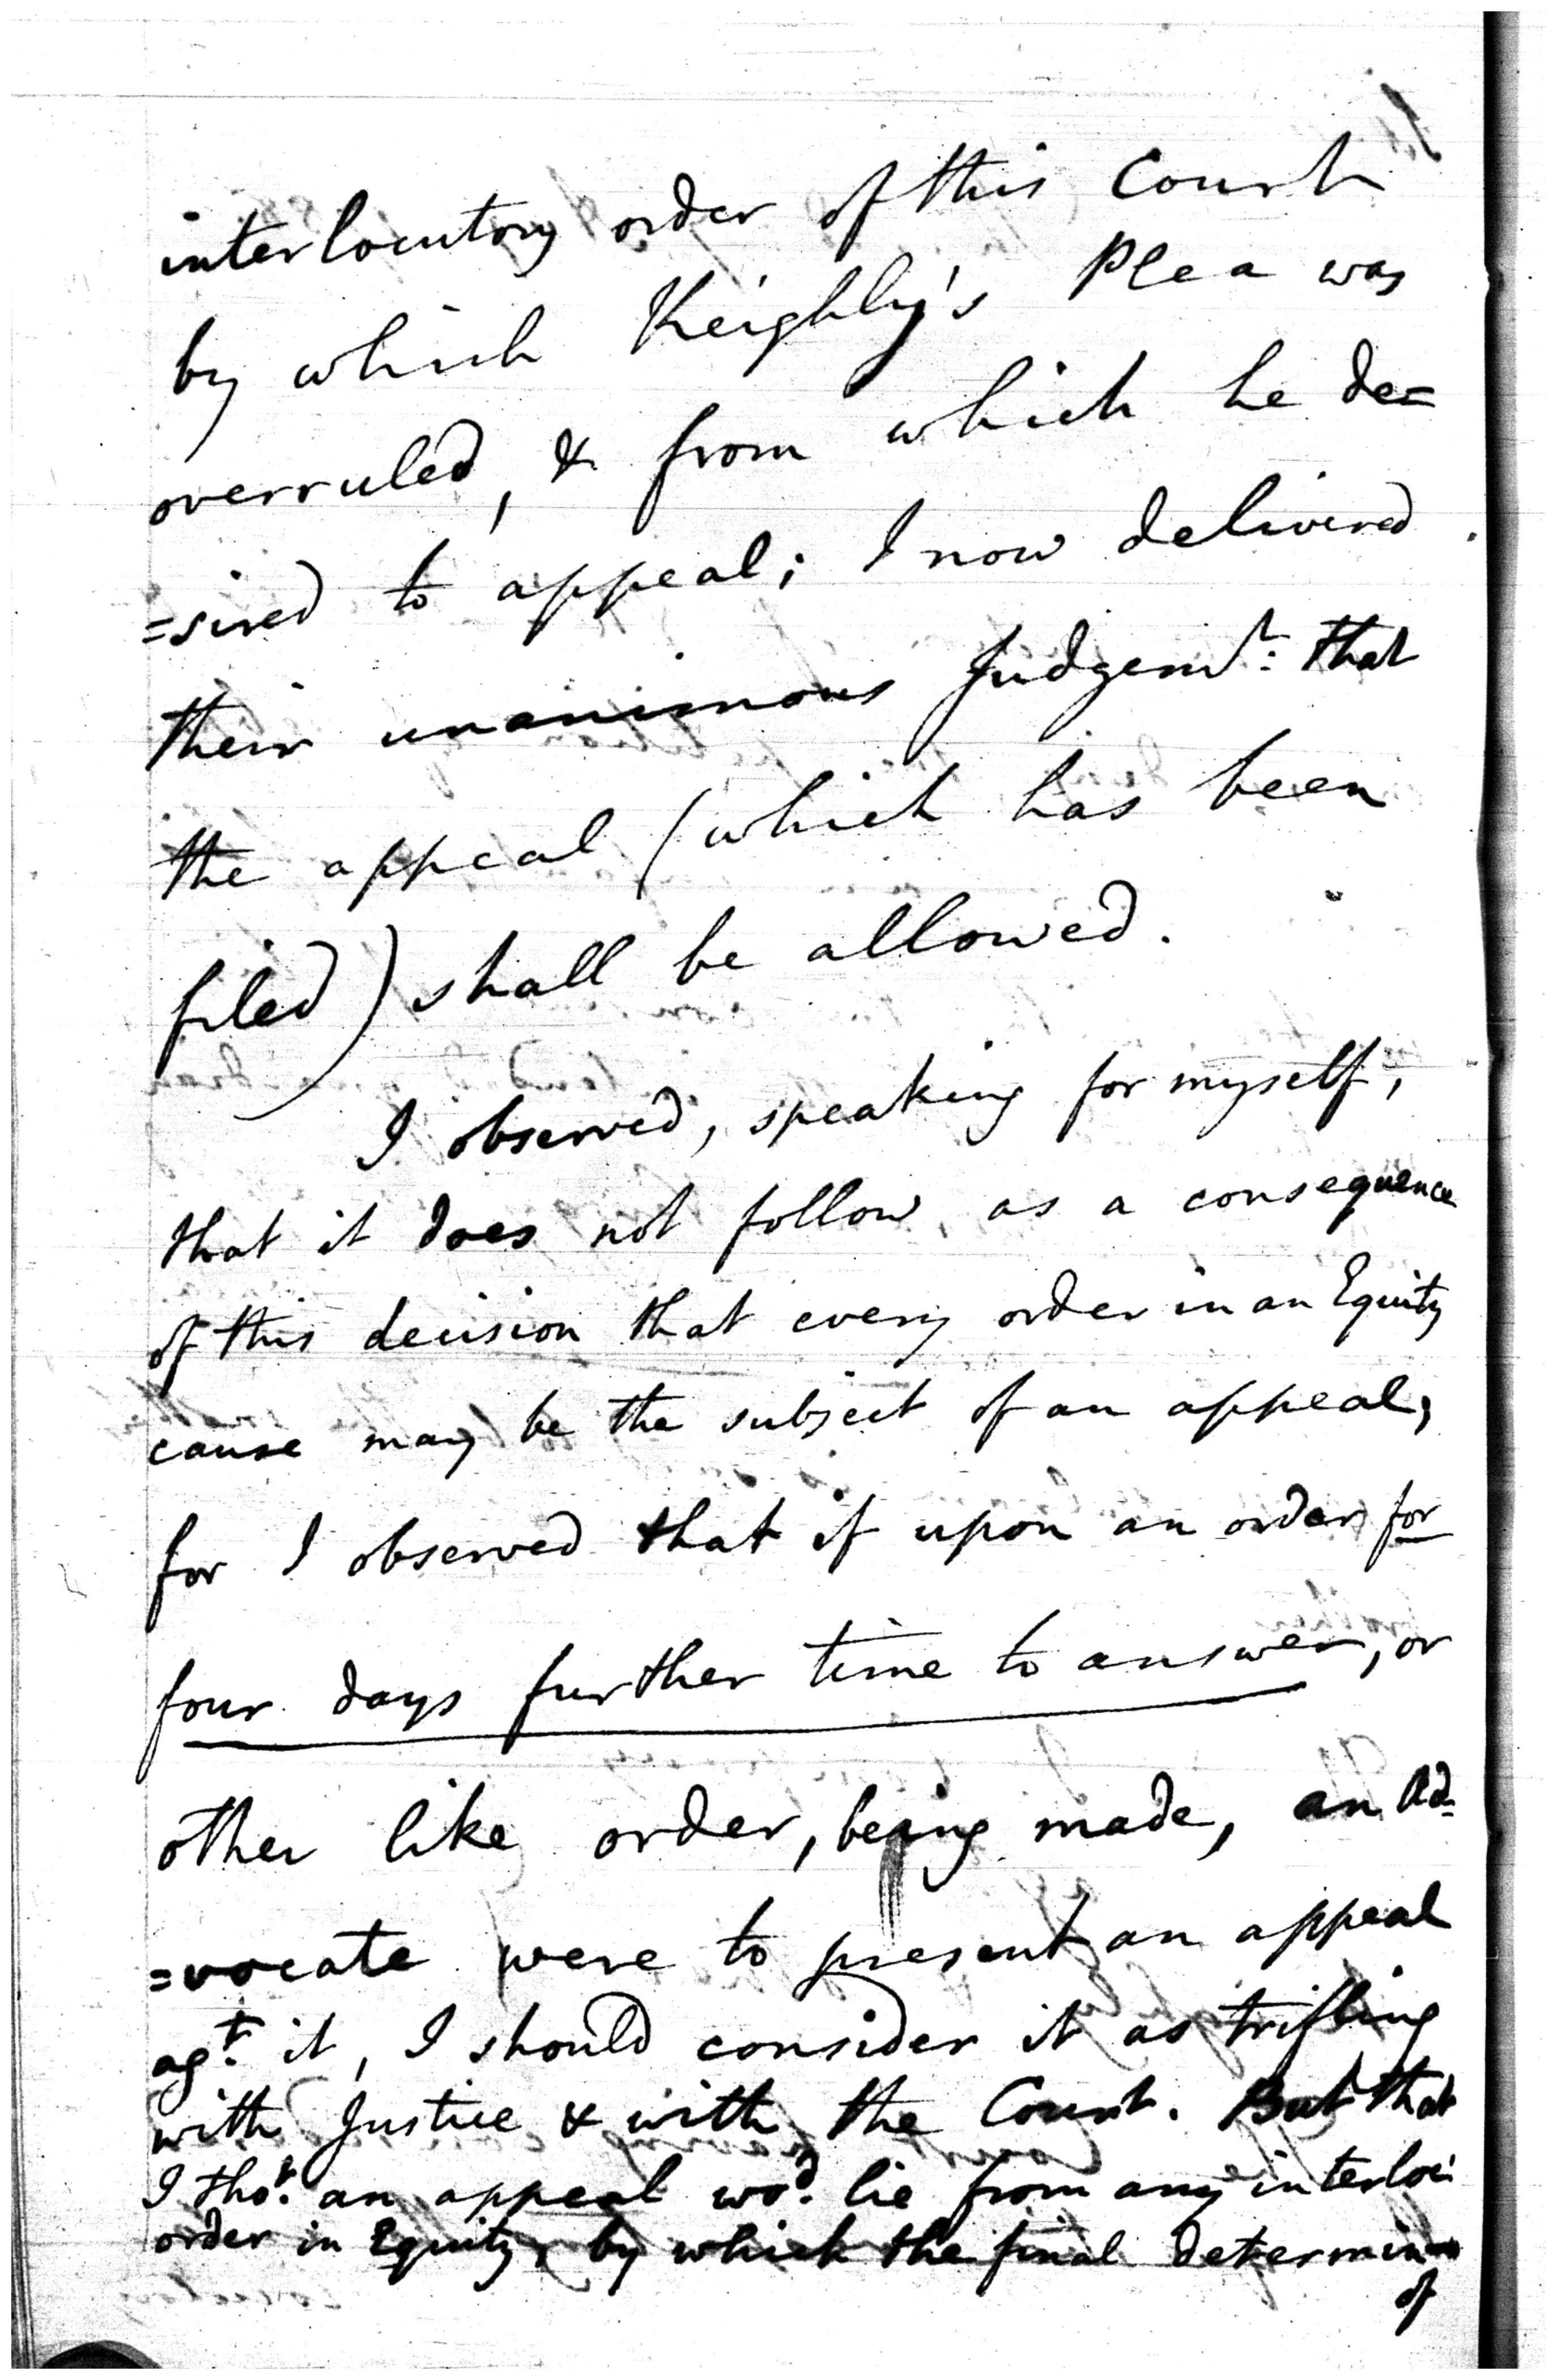 interlocutory order of this Court
by which Keighly's Plea was
overruled, & from which he de=
=sired to appeal; I now delivered
their unanimous Judgem.t: that
the appeal (which has been
filed) shall be allowed.
I observed, speaking for myself,
that it does not follow, as a consequence
of this decision that every order in an Equity
cause may be the subject of an appeal,
for I observed that if upon an order for
four days further time to answer, or
other like order, being made, an Ad=
=vocate were to present an appeal
ag.t it, I should consider it as trifling
with Justice & with the Court. But that
I tho.t an appeal wo.d lie from any interloc:
order in Equity, by which the final determin=
of